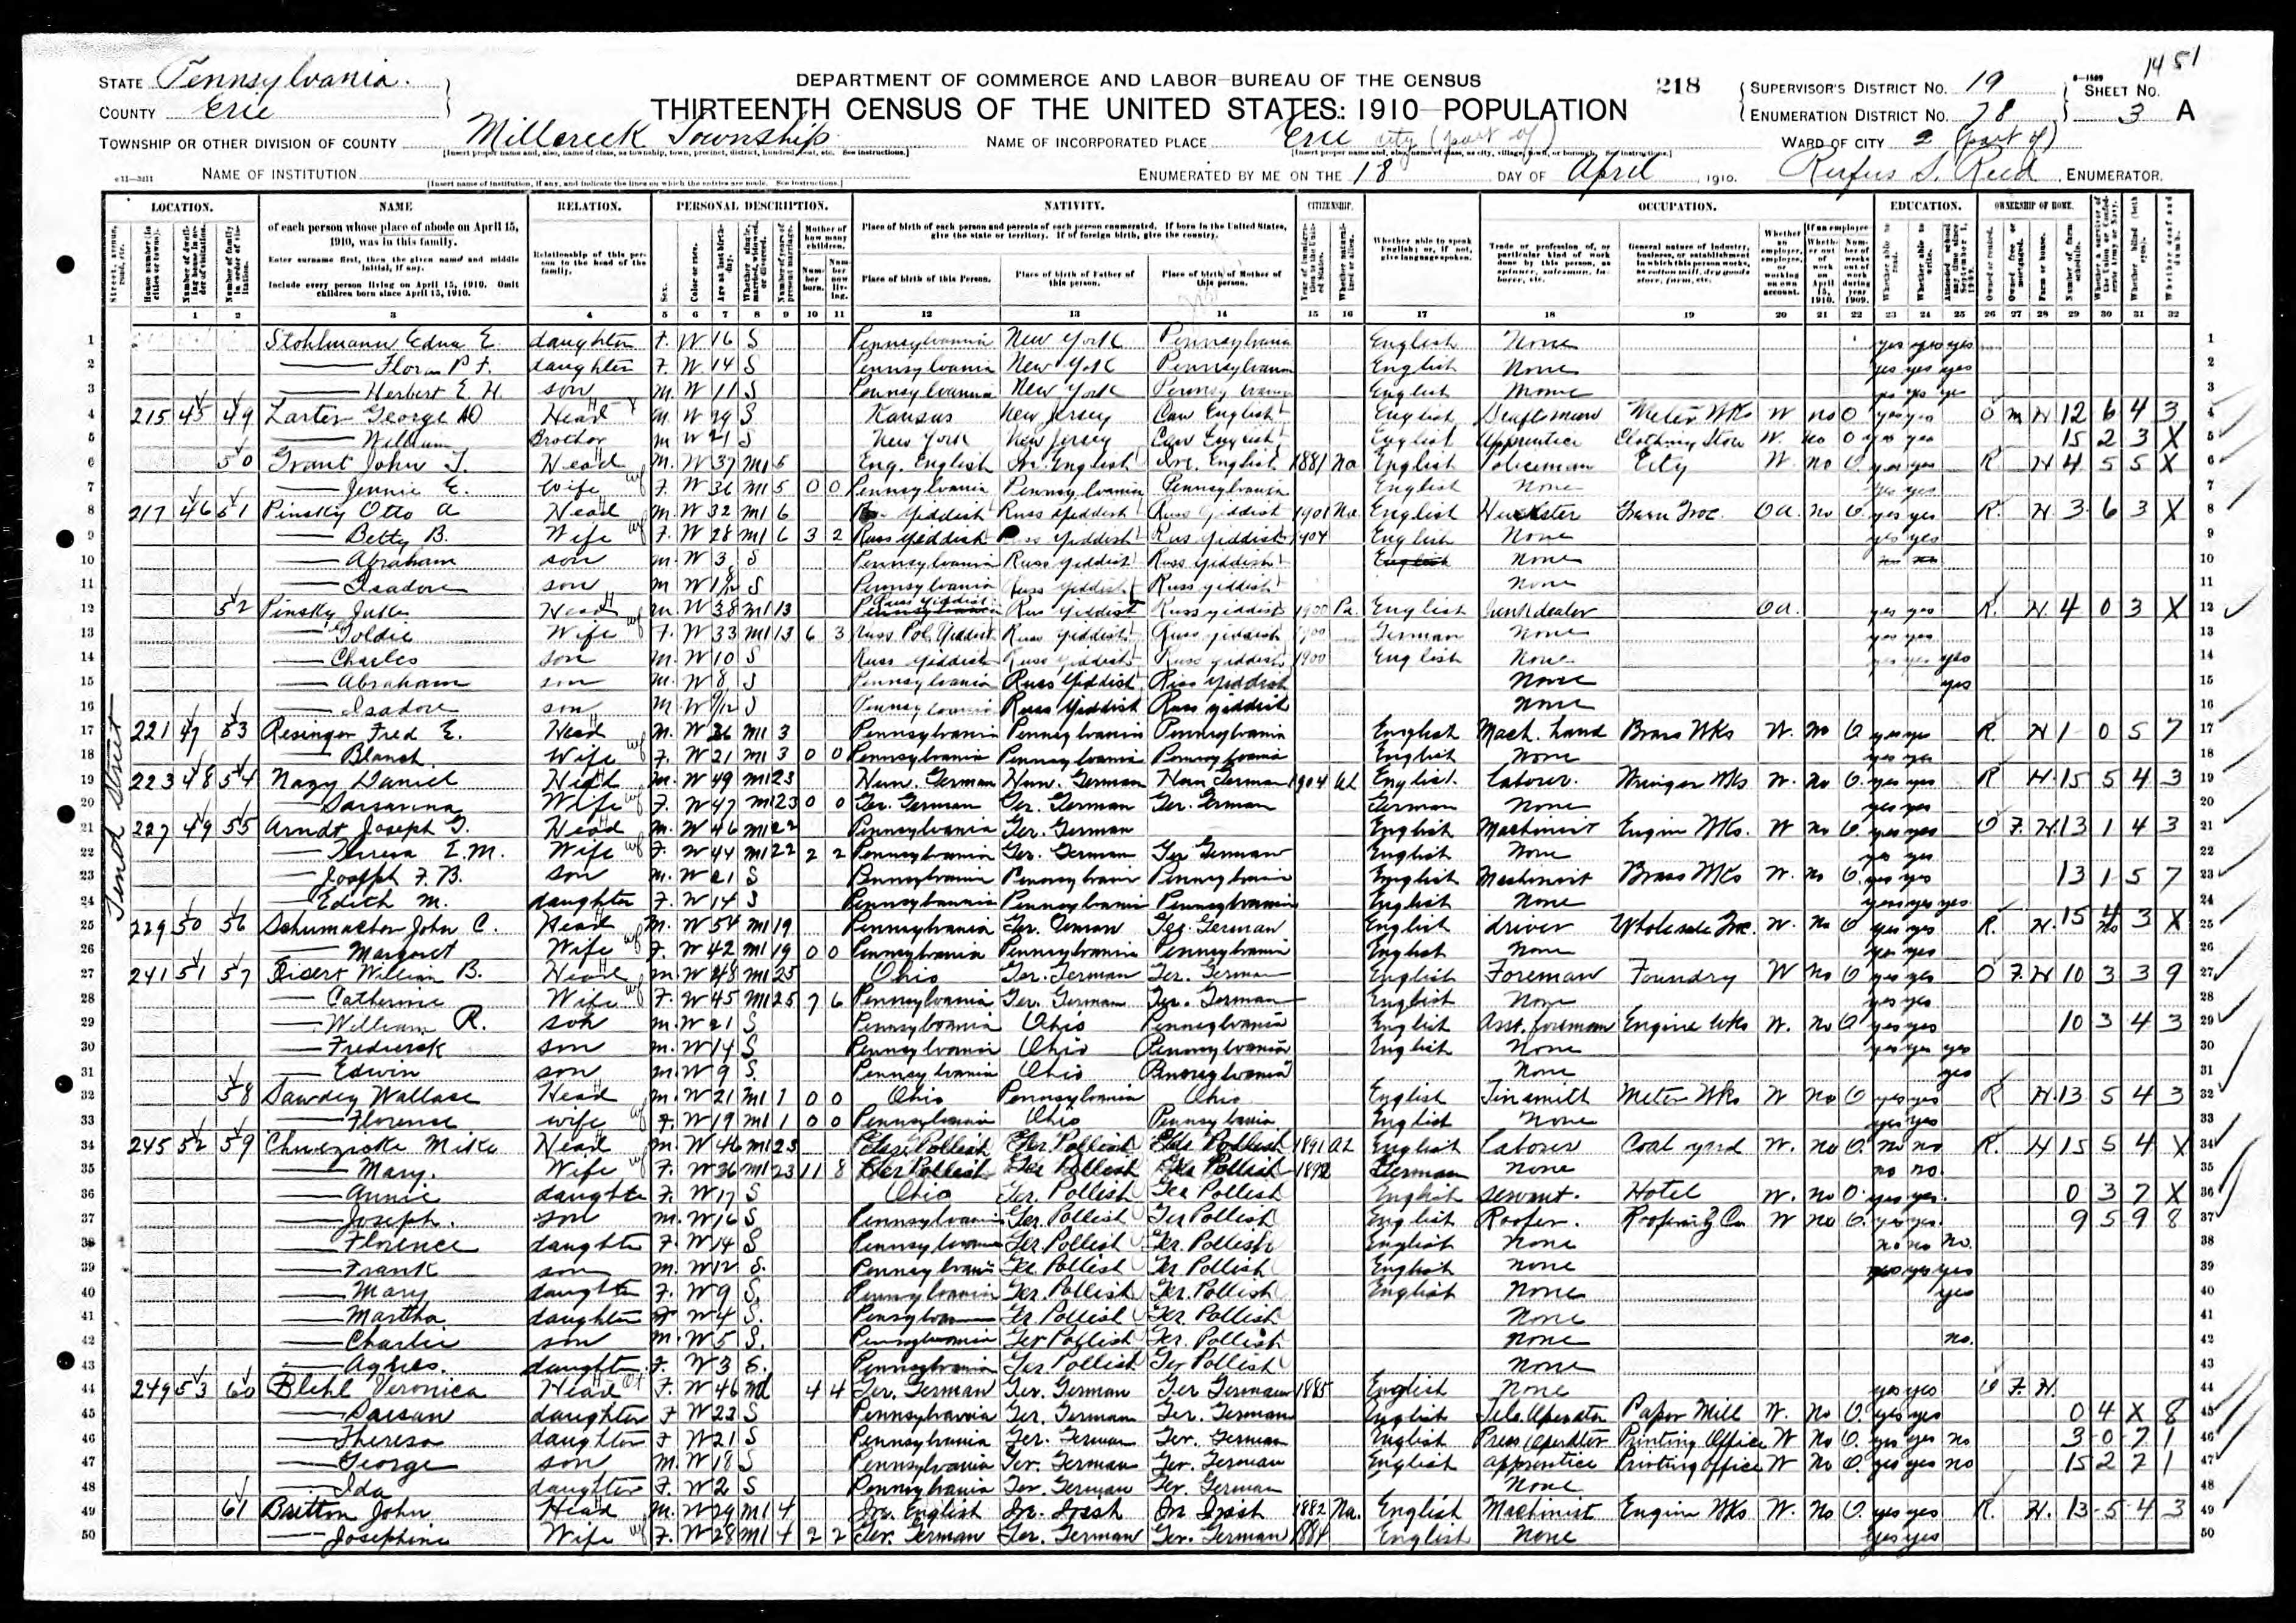 1451
STATE Pennsylvania.
COUNTY Erie
DEPARTMENT OF COMMERCE AND LABOR—BUREAU OF THE CENSUS
THIRTEENTH CENSUS OF THE UNITED STATES: 1910—POPULATION
218
SUPERVISOR'S DISTRICT NO. 19
ENUMERATION DISTRICT NO. 78
SHEET NO. 3 A
TOWNSHIP OR OTHER DIVISION OF COUNTY Millcreek Township
NAME OF INCORPORATED PLACE Erie city (part of)
WARD OF CITY 2 (part of)
NAME OF INSTITUTION
ENUMERATED BY ME ON THE 18 DAY OF April, 1910. Rufus S. Reed, ENUMERATOR.
LOCATION. NAME RELATION. PERSONAL DESCRIPTION. NATIVITY. CITIZENSHIP. OCCUPATION. EDUCATION. OWNERSHIP OF HOME.
of each person whose place of abode on April 15, 1910, was in this family.
Enter surname first, then the given name and middle initial, if any.
Include every person living on April 15, 1910. Omit children born since April 15, 1910.
Place of birth of each person and parents of each person enumerated. If born in the United States, give the state or territory. If of foreign birth, give the country.
Place of birth of this Person. Place of birth of Father of this person. Place of birth of Mother of this person.
1 2 3 4 5 6 7 8 9 10 11 12 13 14 15 16 17 18 19 20 21 22 23 24 25 26 27 28 29 30 31 32
1 Stohlmann Edna E daughter F. W 16 S Pennsylvania New York Pennsylvania English None yes yes yes
2 Flora P. F. daughter F. W 14 S Pennsylvania New York Pennsylvania English None yes yes yes
3 Herbert E. H. son M. W 11 S Pennsylvania New York Pennsylvania English None yes yes yes
4 215 45 49 Larter George Head M. W 29 S Kansas New Jersey Can English English Draftsman Meter Wks W no O yes yes O M H 12 6 4 3
5 William Brother M W 21 S New York New Jersey Can English English Apprentice Clothing Store W. no O yes yes 15 2 3 X
6 50 Grant John T. Head M. W 37 M1 5 Eng. English Ire. English Ire. English 1881 Na English Policeman City W no O yes yes R H 4 5 5 X
7 Jennie E. Wife F. W 36 M1 5 0 0 Pennsylvania Pennsylvania Pennsylvania English None yes yes
8 217 46 51 Pinsky Otto A Head M. W 32 M1 6 Yiddish Russ Yiddish Russ Yiddish 1901 Na English Huckster OA. no O. yes yes R. H. 3 6 3 X
9 Betty B. Wife F. W 28 M1 6 3 2 Russ Yiddish Russ Yiddish Russ Yiddish 1904 English None yes yes
10 Abraham son M. W 3 S Pennsylvania Russ Yiddish Russ Yiddish English None
11 Isadore son M W S Pennsylvania Russ Yiddish Russ Yiddish None
12 52 Pinsky Head M. W 38 M1 13 Russ Yiddish Russ Yiddish Russ Yiddish 1900 Pa. English Junk dealer OA. yes yes R. H. 4 0 3 X
13 Goldie Wife F. W 33 M1 13 6 3 Russ Pol. Yiddish Russ Yiddish Russ Yiddish 1900 German None yes yes
14 Charles son M. W 10 S Russ Yiddish Russ Yiddish Russ Yiddish 1900 English None yes yes yes
15 Abraham son M. W 8 S Pennsylvania Russ Yiddish Russ Yiddish None yes
16 Isadore son M W 9/12 S Pennsylvania Russ Yiddish Russ Yiddish None
17 221 47 53 Resinger Fred E. Head M. W 26 M1 3 Pennsylvania Pennsylvania Pennsylvania English Mach. hand Brass Wks W. No O yes yes R. H 1 0 5 7
18 Blanch. Wife F. W 21 M1 3 0 0 Pennsylvania Pennsylvania Pennsylvania English None yes yes
19 223 48 54 Nagy Daniel Head M. W 49 M1 23 Hun. German Hun. German Hun German 1904 AL English. Laborer. Wringer Wks W. No O. yes yes R H. 15 5 4 3
20 Wife F. W 47 M1 23 0 0 Ger. German Ger. German Ger. German German None yes yes
21 227 49 55 Arndt Joseph G. Head M. W 46 M1 22 Pennsylvania Ger. German English Machinist Engine Wks. W no O. yes yes O F. H. 13 1 4 3
22 Theresa E. M. Wife F. W 44 M1 22 2 2 Pennsylvania Ger. German Ger German English None yes yes
23 Joseph F. B. son M. W 21 S Pennsylvania Pennsylvania Pennsylvania English Machinist Brass Wks W. no O. yes yes 13 1 5 7
24 Edith M. daughter F. W 14 S Pennsylvania Pennsylvania Pennsylvania English None yes yes yes
25 229 50 56 Schumacher John C. Head M. W 54 M1 19 Pennsylvania Ger. German Ger. German English driver Wholesale Groc. W. No O yes yes R. H. 15 4 3 X
26 Margaret Wife F. W 42 M1 19 0 0 Pennsylvania Pennsylvania Pennsylvania English None yes yes
27 241 51 57 Eisert William B. Head M. W 48 M1 25 Ohio Ger. German Ger. German English Foreman Foundry W No O yes yes O F. H 10 3 3 9
28 Catherine Wife F. W 45 M1 25 7 6 Pennsylvania Ger. German Ger. German English None yes yes
29 William R. son M. W 21 S Pennsylvania Ohio Pennsylvania English Asst. foreman Engine Wks W. No O yes yes 10 3 4 3
30 Frederick son M. W 14 S Pennsylvania Ohio Pennsylvania English None yes yes yes
31 Edwin son M. W 9 S. Pennsylvania Ohio Pennsylvania None yes
32 58 Sawdey Wallace Head M. W 21 M1 1 0 0 Ohio Pennsylvania Ohio English Tinsmith Meter Wks W No O yes yes R H. 13 5 4 3
33 Florence wife F. W 19 M1 1 0 0 Pennsylvania Ohio Pennsylvania English None yes yes
34 245 52 59 Mike Head M. W 46 M1 23 Ger Pollish Ger Pollish Ger Pollish 1891 AL English Laborer Coal yard W. no O. no no R. H 15 5 4 X
35 Mary. Wife F. W 36 M1 23 11 8 Ger Pollish Ger Pollish Ger Pollish 1892 German None no no.
36 Annie daughter F. W 17 S Ohio Ger. Pollish Ger Pollish English servant. Hotel W. no O. yes yes. 0 3 7 X
37 Joseph. son M. W 16 S Pennsylvania Ger. Pollish Ger Pollish English Roofer. Roofing Co W no O. yes yes. 9 5 9 8
38 Florence daughter F. W 14 S Pennsylvania Ger. Pollish Ger. Pollish English None no no no.
39 Frank son M. W 12 S. Pennsylvania Ger Pollish Ger Pollish English none yes yes yes
40 Mary daughter F. W 9 S. Pennsylvania Ger. Pollish Ger. Pollish English None yes
41 Martha daughter F W 4 S. Pennsylvania Ger Pollish Ger. Pollish None
42 Charlie son M. W 5 S. Pennsylvania Ger Pollish Ger. Pollish None no.
43 Agnes. daughter F. W 3 S. Pennsylvania Ger Pollish Ger Pollish None
44 249 53 60 Blehl Veronica Head F. W 46 Wd 4 4 Ger. German Ger. German Ger German 1885 English None yes yes O F. H.
45 daughter F W 22 S Pennsylvania Ger. German Ger. German English Tele. Operator Paper Mill W. No O. yes yes 0 4 X 8
46 Theresa daughter F W 21 S Pennsylvania Ger. German Ger. German English Press Operator Printing Office W No O. yes yes no 3 0 7 1
47 George son M. W 18 S Pennsylvania Ger. German Ger. German English apprentice Printing office W No O. yes yes no 15 2 7 1
48 Ida daughter F W 2 S Pennsylvania Ger. German Ger. German None
49 61 Britton John Head M. W 29 M1 4 Ire. English Ire. Irish Ire Irish 1882 Na. English Machinist Engine Wks W. No O. yes yes R. H. 13 5 4 3
50 Josephine Wife F. W 28 M1 4 2 2 Ger. German Ger. German Ger. German 1884 English None yes yes